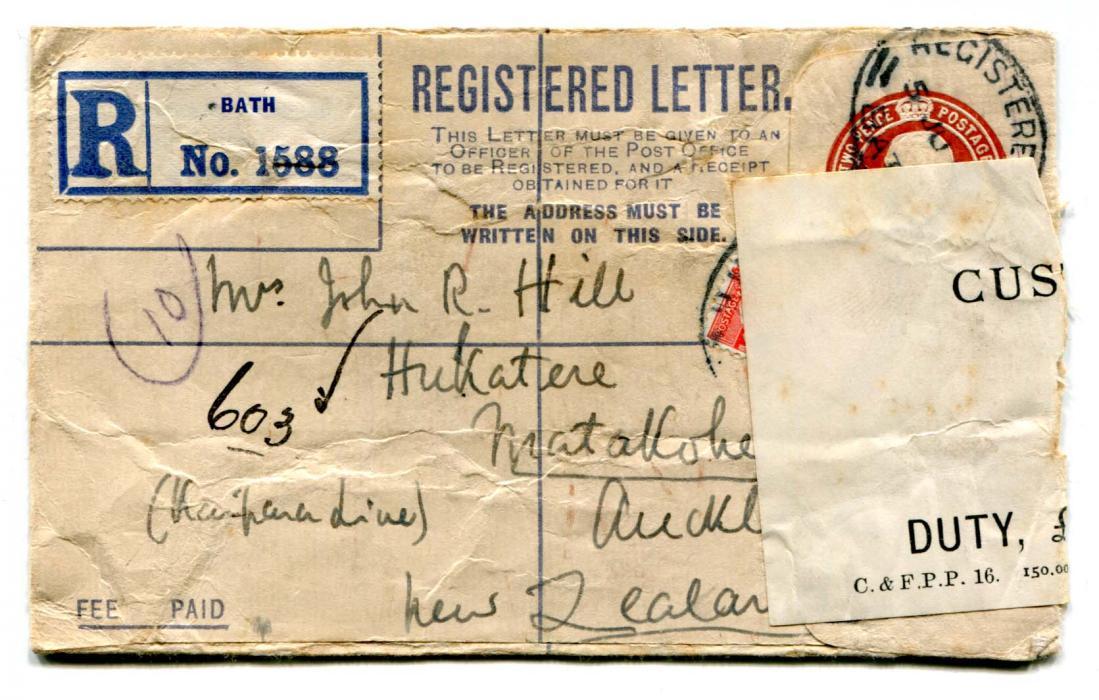 R
BATH
No. 1588
REGISTERED LETTER.
THIS LETTER MUST BE GIVEN TO AN
OFFICER OF THE POST OFFICE
TO BE REGISTERED, AND A RECEIPT
OBTAINED FOR IT
THE ADDRESS MUST BE
WRITTEN ON THIS SIDE.
REGISTERE
TWO PENCE POSTAGE
POSTAGE
10
Mrs John R. Hill
Hukatere
Matakohe
603
(Kaipara Line)
Auckl
New Zealan
FEE PAID
CUS
DUTY, £
C. & F.P.P. 16. 150.00